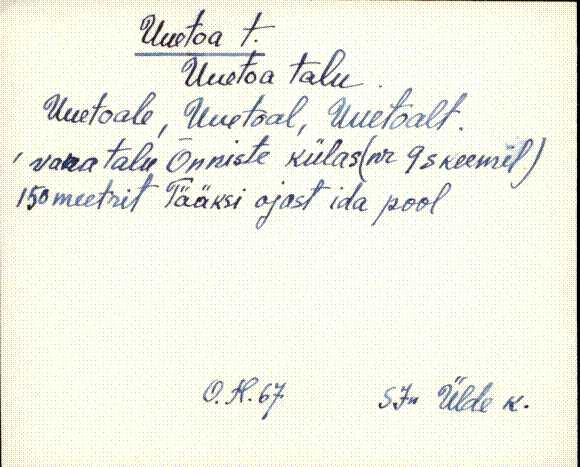 Uuetoa t.
Uuetoa talu.
Uuetoale, Uuetoal, Uuetoalt.
, vana talu Õnniste külas (nr 9 skeemil)
150 meetrit Tääksi ojast ida pool
O.H. 67 SJn Ülde k.